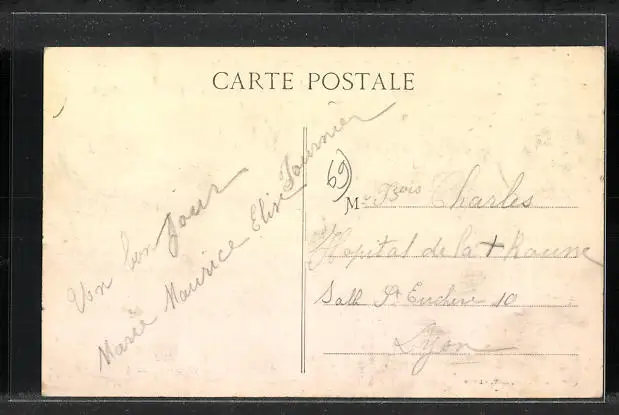 CARTE POSTALE
Un bon jour
Marie Maurice Elise Fournier
69
M. Bois Charles
Hopital de la + Rousse
Salle St Eucher 10
Lyon